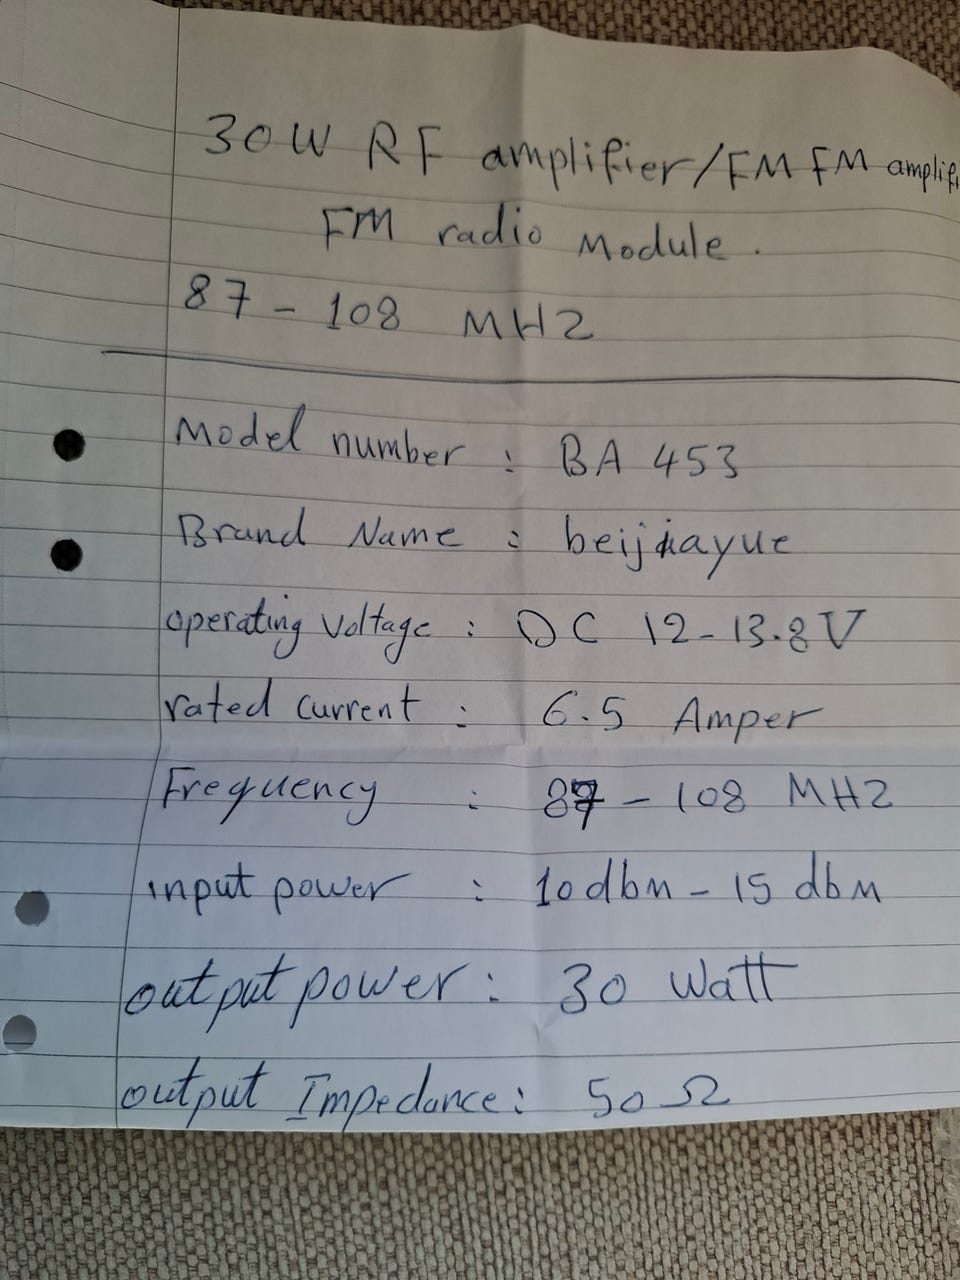 30W RF amplifier/FM FM amplifi
FM radio Module.
87 - 108 MHZ
Model number : BA 453
Brand Name : beijiayue
operating voltage : DC 12-13.8V
rated current : 6.5 Amper
Frequency : 87 - 108 MHZ
input power : 10 dbm - 15 dbm
output power : 30 Watt
output Impedance : 50 Ω